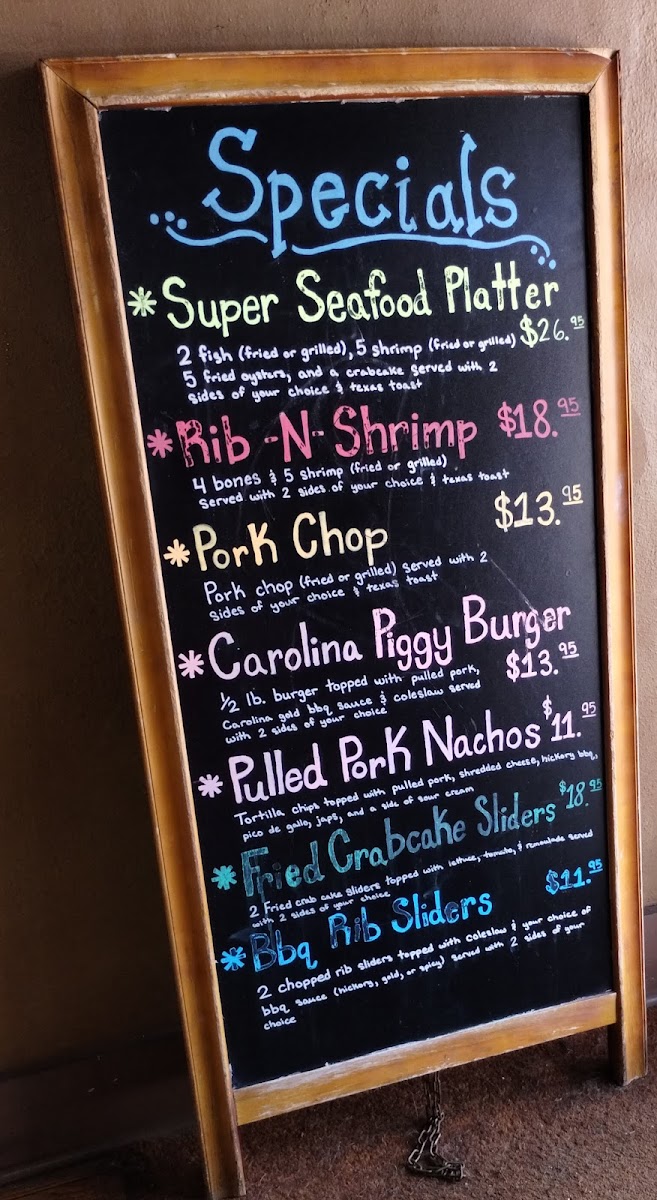 Specials
* Super Seafood Platter
$26.95
2 fish (fried or grilled), 5 shrimp (fried or grilled)
5 fried oysters, and a crabcake served with 2
sides of your choice & texas toast
* Rib-N-Shrimp $18.95
4 bones & 5 shrimp (fried or grilled)
served with 2 sides of your choice & texas toast
* Pork Chop $13.95
Pork chop (fried or grilled) served with 2
sides of your choice & texas toast
* Carolina Piggy Burger
$13.95
1/2 lb. burger topped with pulled pork,
Carolina gold bbq sauce & coleslaw served
with 2 sides of your choice
* Pulled Pork Nachos $11.95
Tortilla chips topped with pulled pork, shredded cheese, hickory bbq,
pico de gallo, japs, and a side of sour cream
* Fried Crabcake Sliders $18.95
2 Fried crab cake sliders topped with lettuce, tomato, & remoulade served
with 2 sides of your choice
* Bbq Rib Sliders $11.95
2 chopped rib sliders topped with coleslaw & your choice of
bbq sauce (hickory, gold, or spicy) served with 2 sides of your
choice